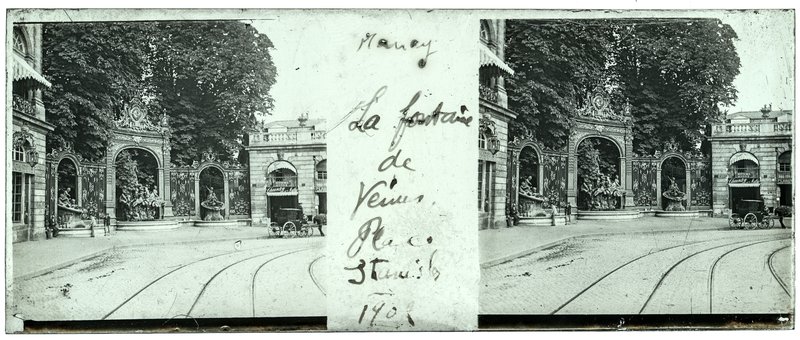 Nancy
La fontaine
de
Venus.
Place
Stanislas